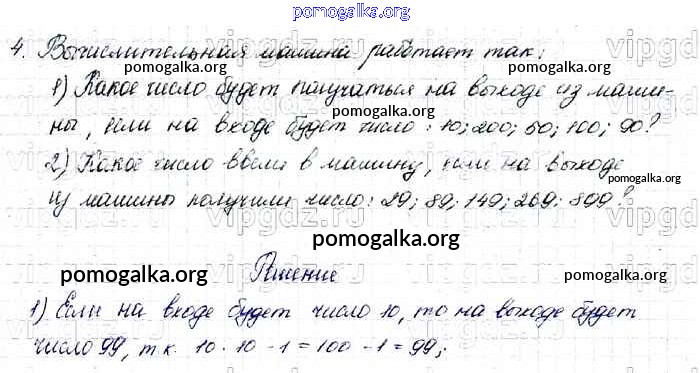 pomogalka.org
4. Вычислительная машина работает так:
pomogalka.org
1) Какое число будет получаться на выходе из маши-
pomogalka.org
ны, если на входе будет число: 10; 200; 50; 100; 90?
pomogalka.org
2) Какое число ввели в машину, если на выходе
pomogalka.org
из машины получили число: 29; 89; 149; 269; 899?
pomogalka.org
pomogalka.org
Решение
pomogalka.org
pomogalka.org
1) Если на входе будет число 10, то на выходе будет
число 99, т.к. 10 · 10 - 1 = 100 - 1 = 99;